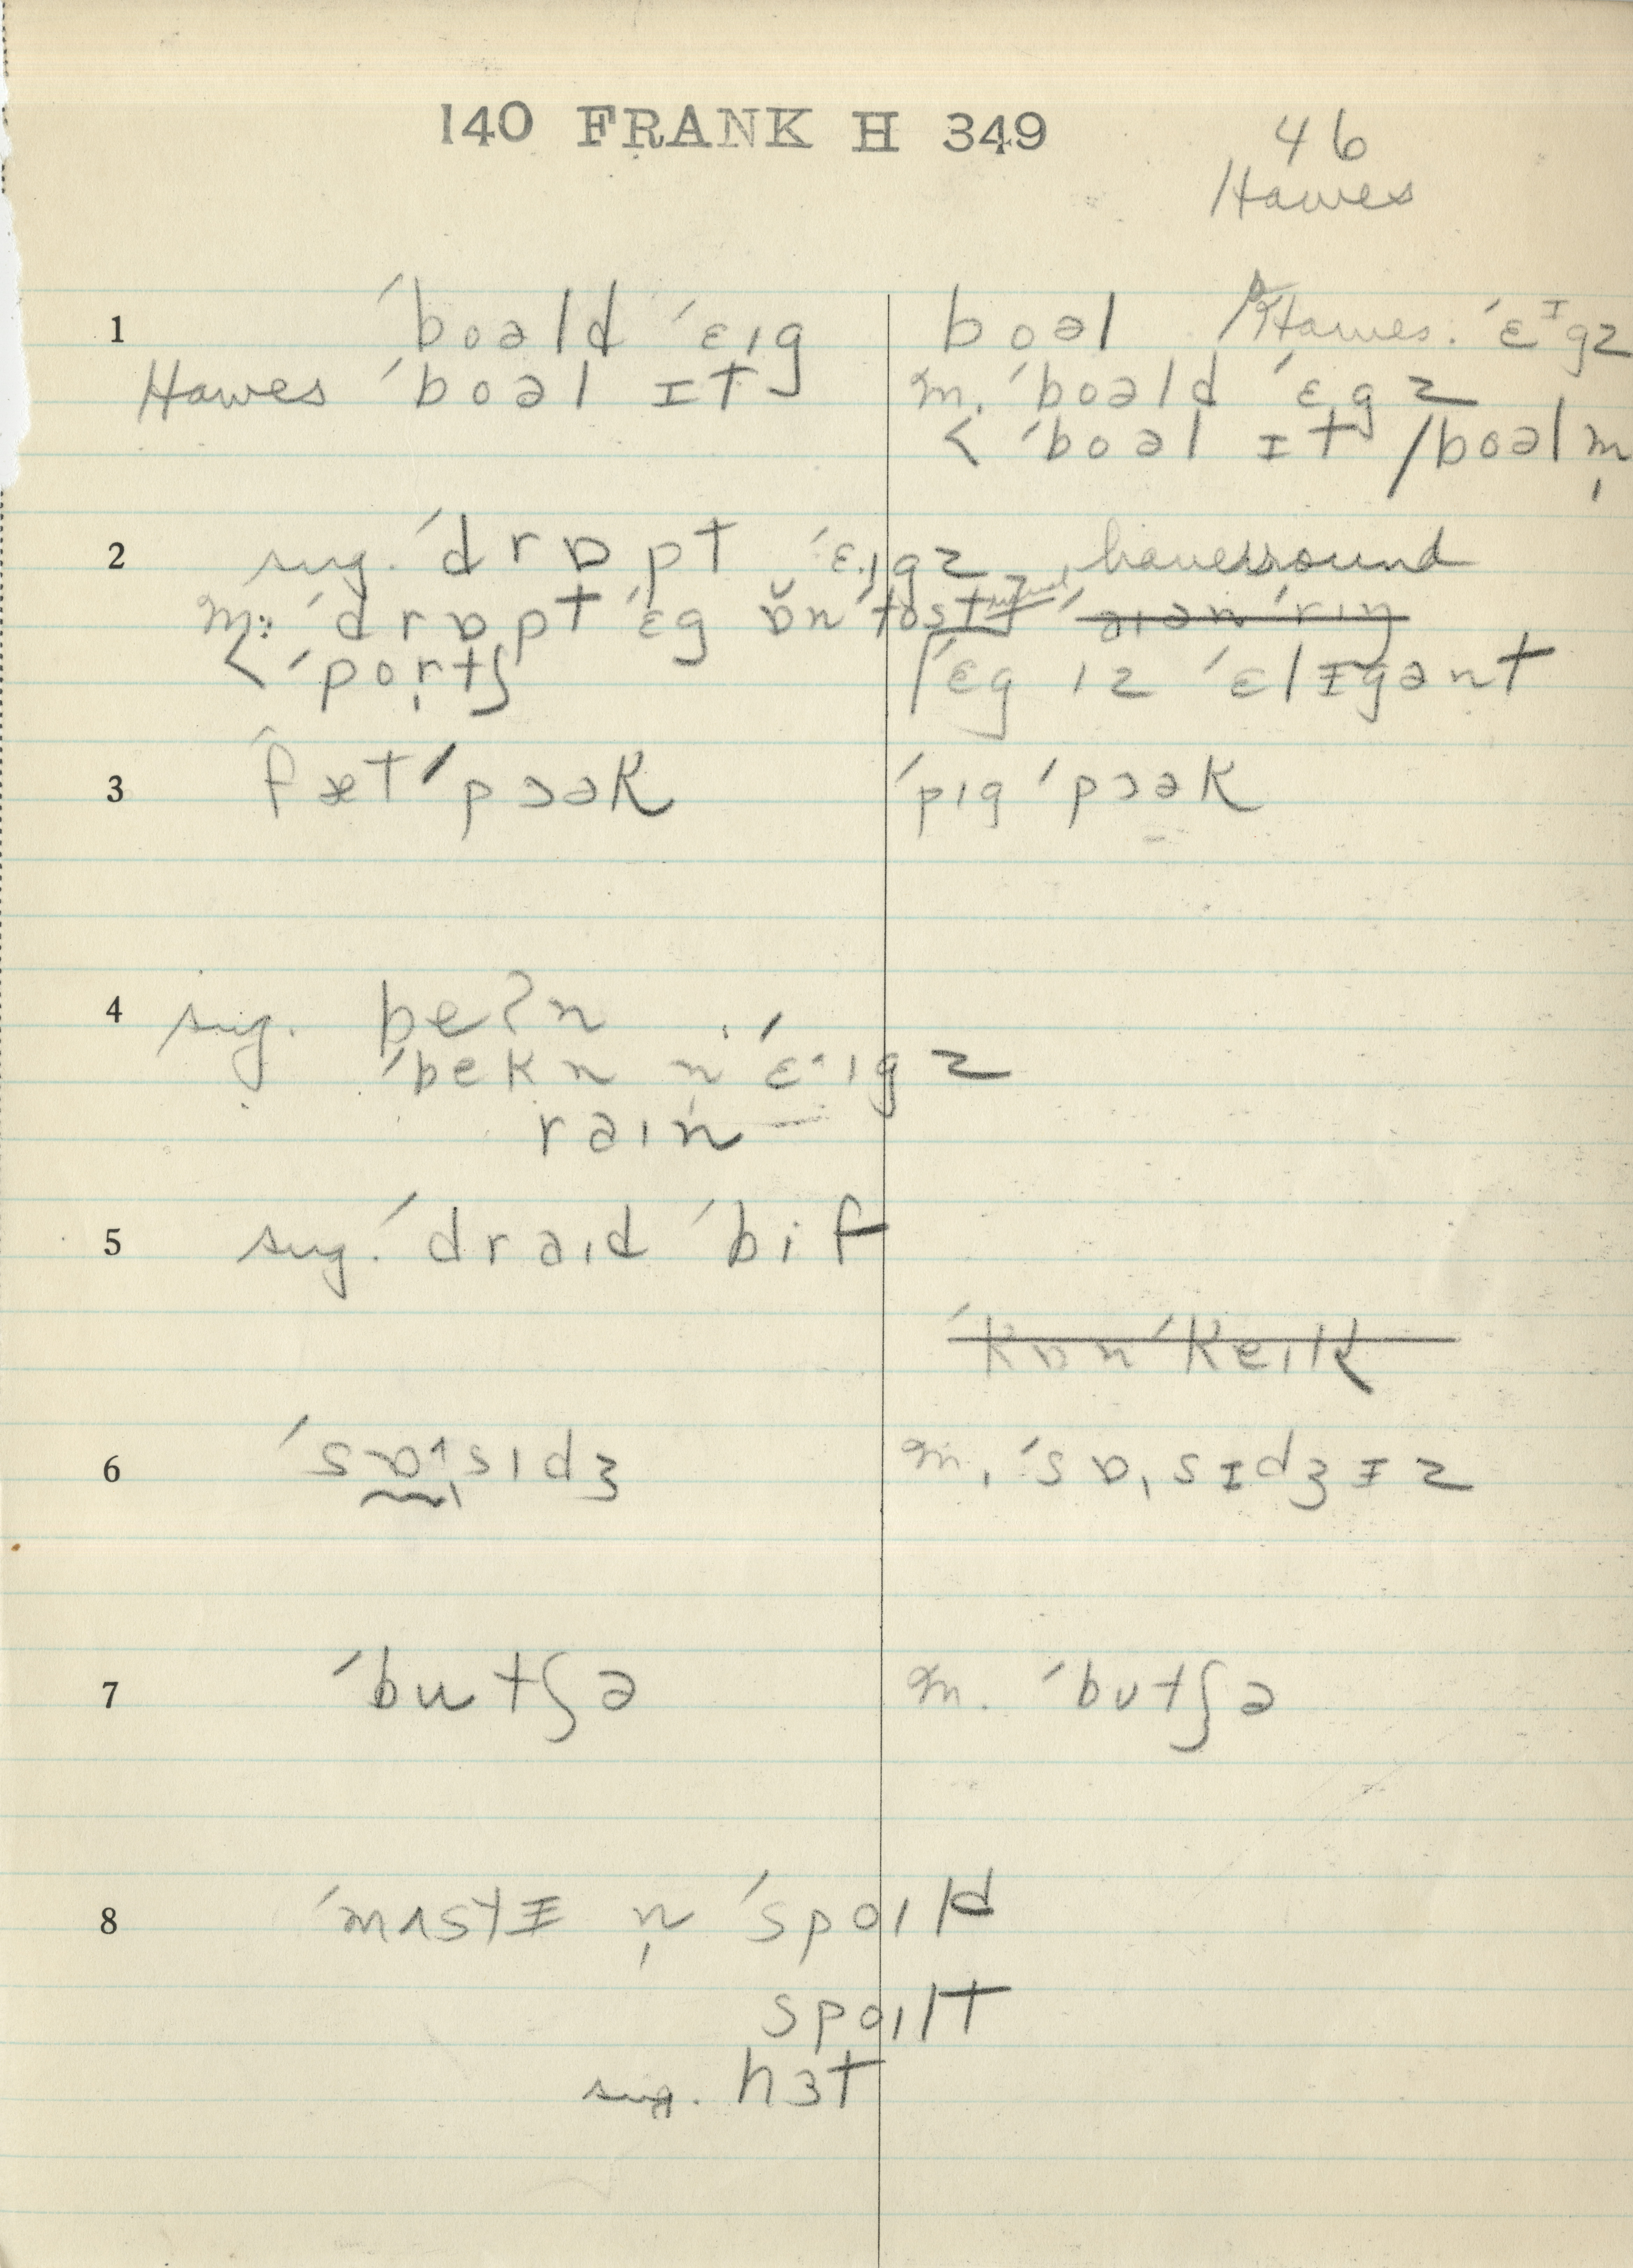 140 FRANK H 349
46
Hawes
1 ˈboəld ˈɛɪg boəl Hawes. ˈɛᴵgz
Hawes ˈboəl ɪt m. ˈboəld ˈɛgz
< ˈboəl ɪt /boəl m̩
2 sug. ˈdrɒpt ˈɛ·ɪgz
m: ˈdrɒpt ˈɛg ɒ̆n ˈtost ˈaɪən ˈrɪŋ
< ˈportʃ ˈɛg ɪz ˈɛlɪgənt
3 ˈfæt ˈpɔək ˈpɪg ˈpɔək
4 sug. beʔn
ˈbekn n ˈɛ·ɪgz
raɪn
5 sug. ˈdraɪd ˈbif
ˈkɒn ˈkeɪk
6 ˈsɒ^ˌsɪdʒ m. ˈsɒˌsɪdʒɪz
7 ˈbutʃə m. ˈbʊtʃə
8 ˈmʌstɪ n̩ ˈspoɪld
spoɪlt
sug. hɜt